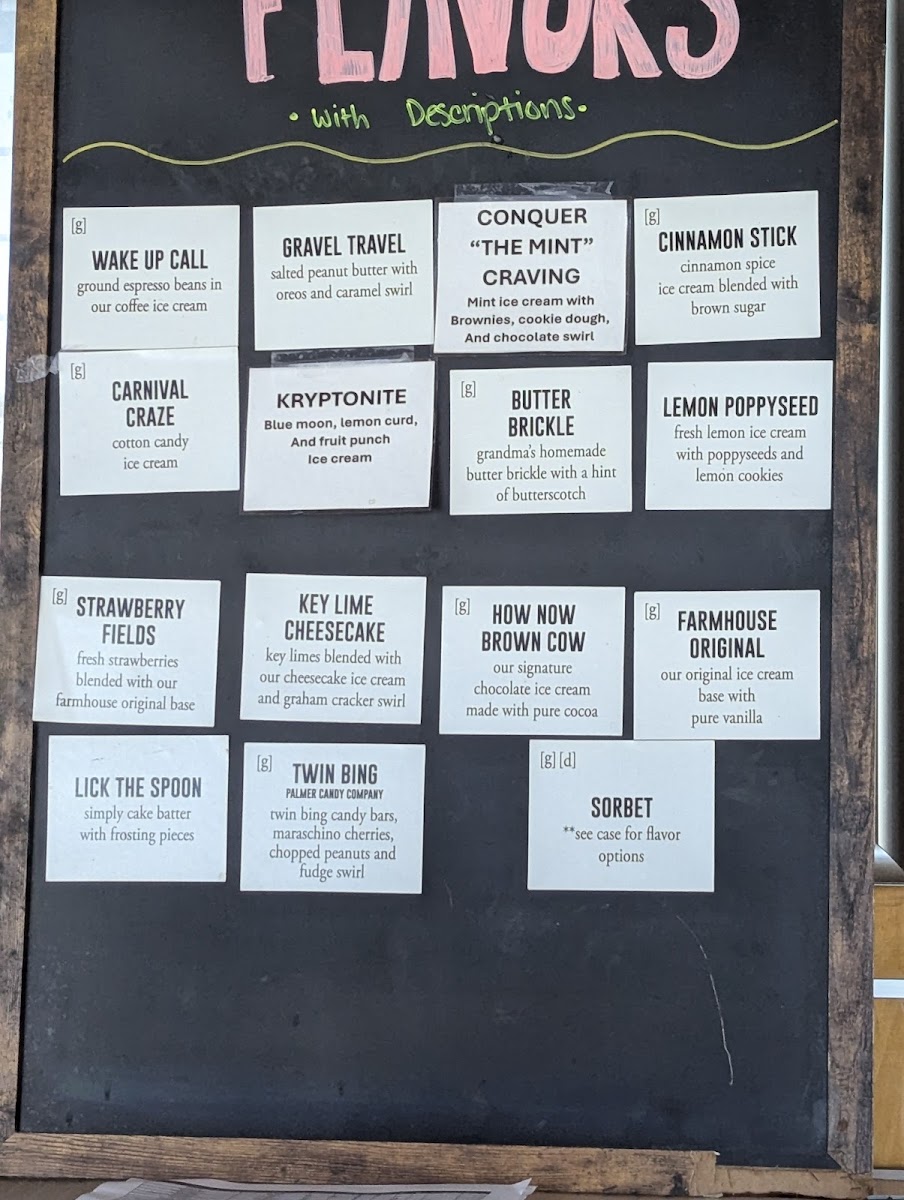 FLAVORS
• With Descriptions •
[g]
WAKE UP CALL
ground espresso beans in
our coffee ice cream
GRAVEL TRAVEL
salted peanut butter with
oreos and caramel swirl
CONQUER
“THE MINT”
CRAVING
Mint ice cream with
Brownies, cookie dough,
And chocolate swirl
[g]
CINNAMON STICK
cinnamon spice
ice cream blended with
brown sugar
[g]
CARNIVAL
CRAZE
cotton candy
ice cream
KRYPTONITE
Blue moon, lemon curd,
And fruit punch
Ice cream
[g]
BUTTER
BRICKLE
grandma's homemade
butter brickle with a hint
of butterscotch
LEMON POPPYSEED
fresh lemon ice cream
with poppyseeds and
lemon cookies
[g]
STRAWBERRY
FIELDS
fresh strawberries
blended with our
farmhouse original base
KEY LIME
CHEESECAKE
key limes blended with
our cheesecake ice cream
and graham cracker swirl
[g]
HOW NOW
BROWN COW
our signature
chocolate ice cream
made with pure cocoa
[g]
FARMHOUSE
ORIGINAL
our original ice cream
base with
pure vanilla
LICK THE SPOON
simply cake batter
with frosting pieces
[g]
TWIN BING
PALMER CANDY COMPANY
twin bing candy bars,
maraschino cherries,
chopped peanuts and
fudge swirl
[g] [d]
SORBET
**see case for flavor
options